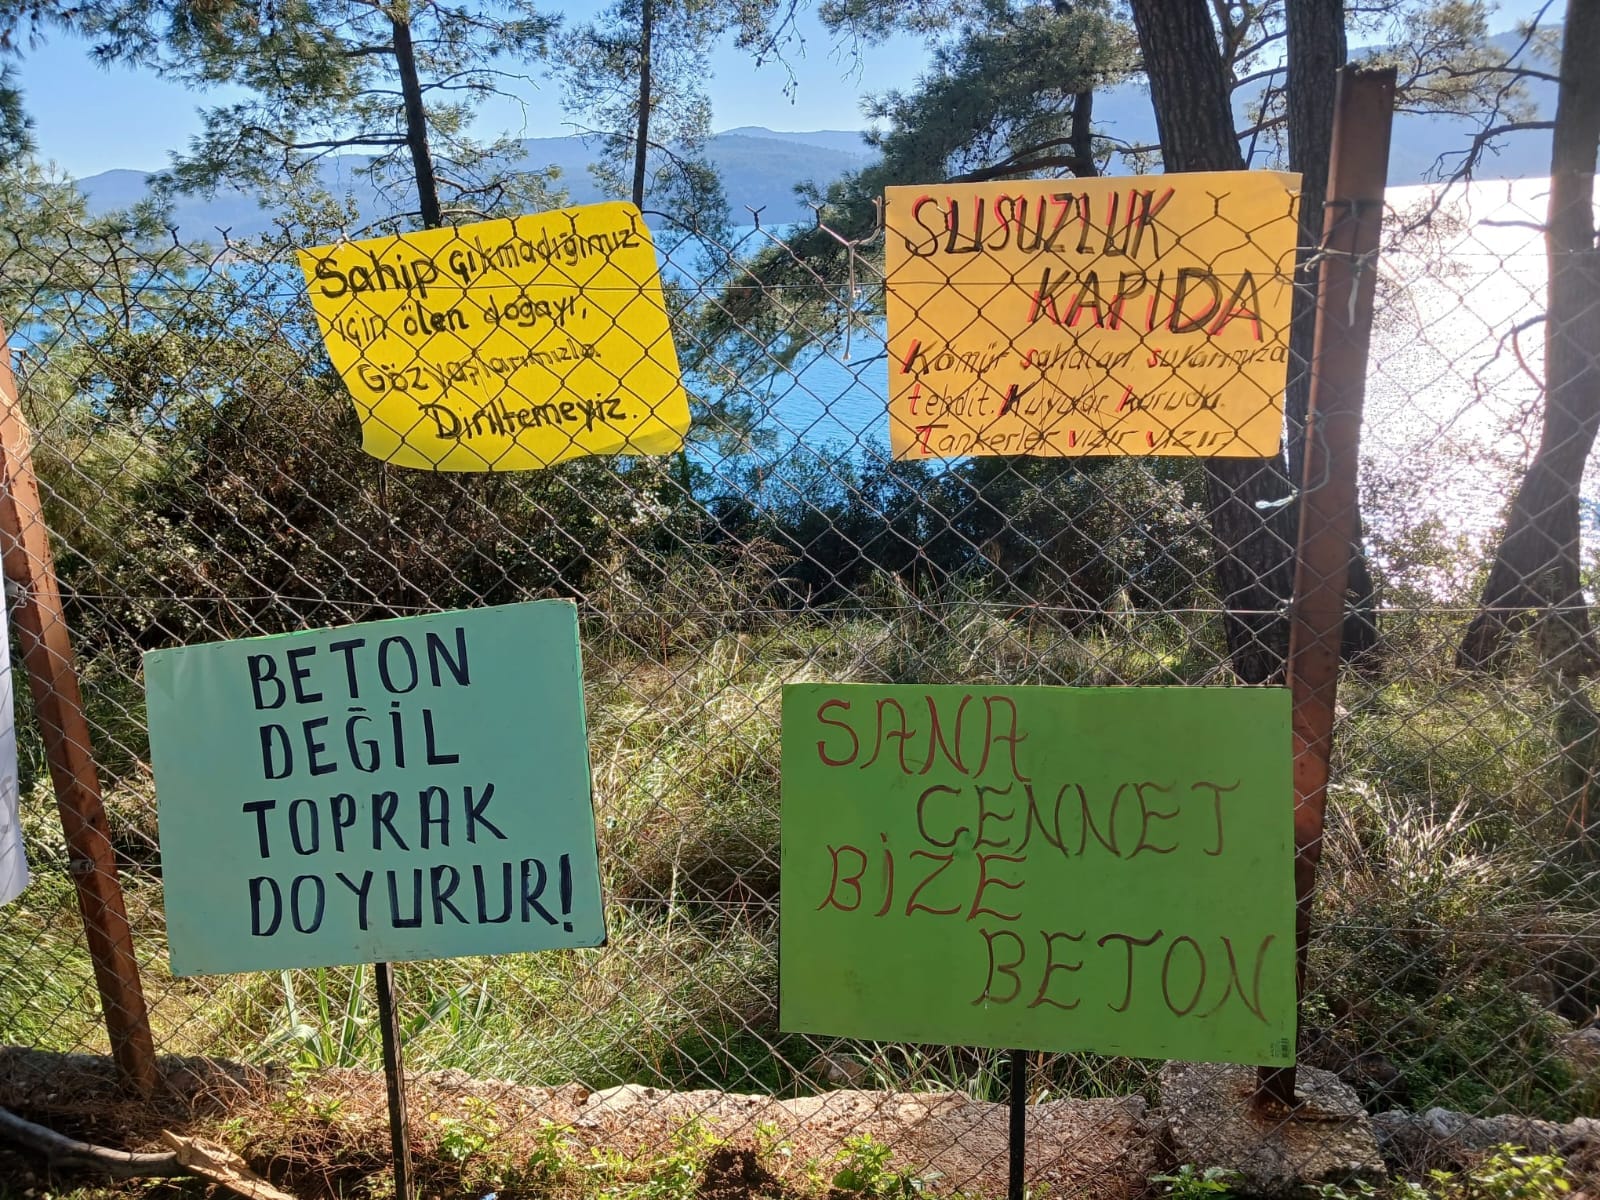 Sahip çıkmadığımız
için ölen doğayı,
Gözyaşlarımızla
Diriltemeyiz.
SUSUZLUK
KAPIDA
Kömür sahaları, sularımıza
tehdit. Kuyular kurudu.
Tankerler vızır vızır.
BETON
DEĞİL
TOPRAK
DOYURUR!
SANA
CENNET
BİZE
BETON